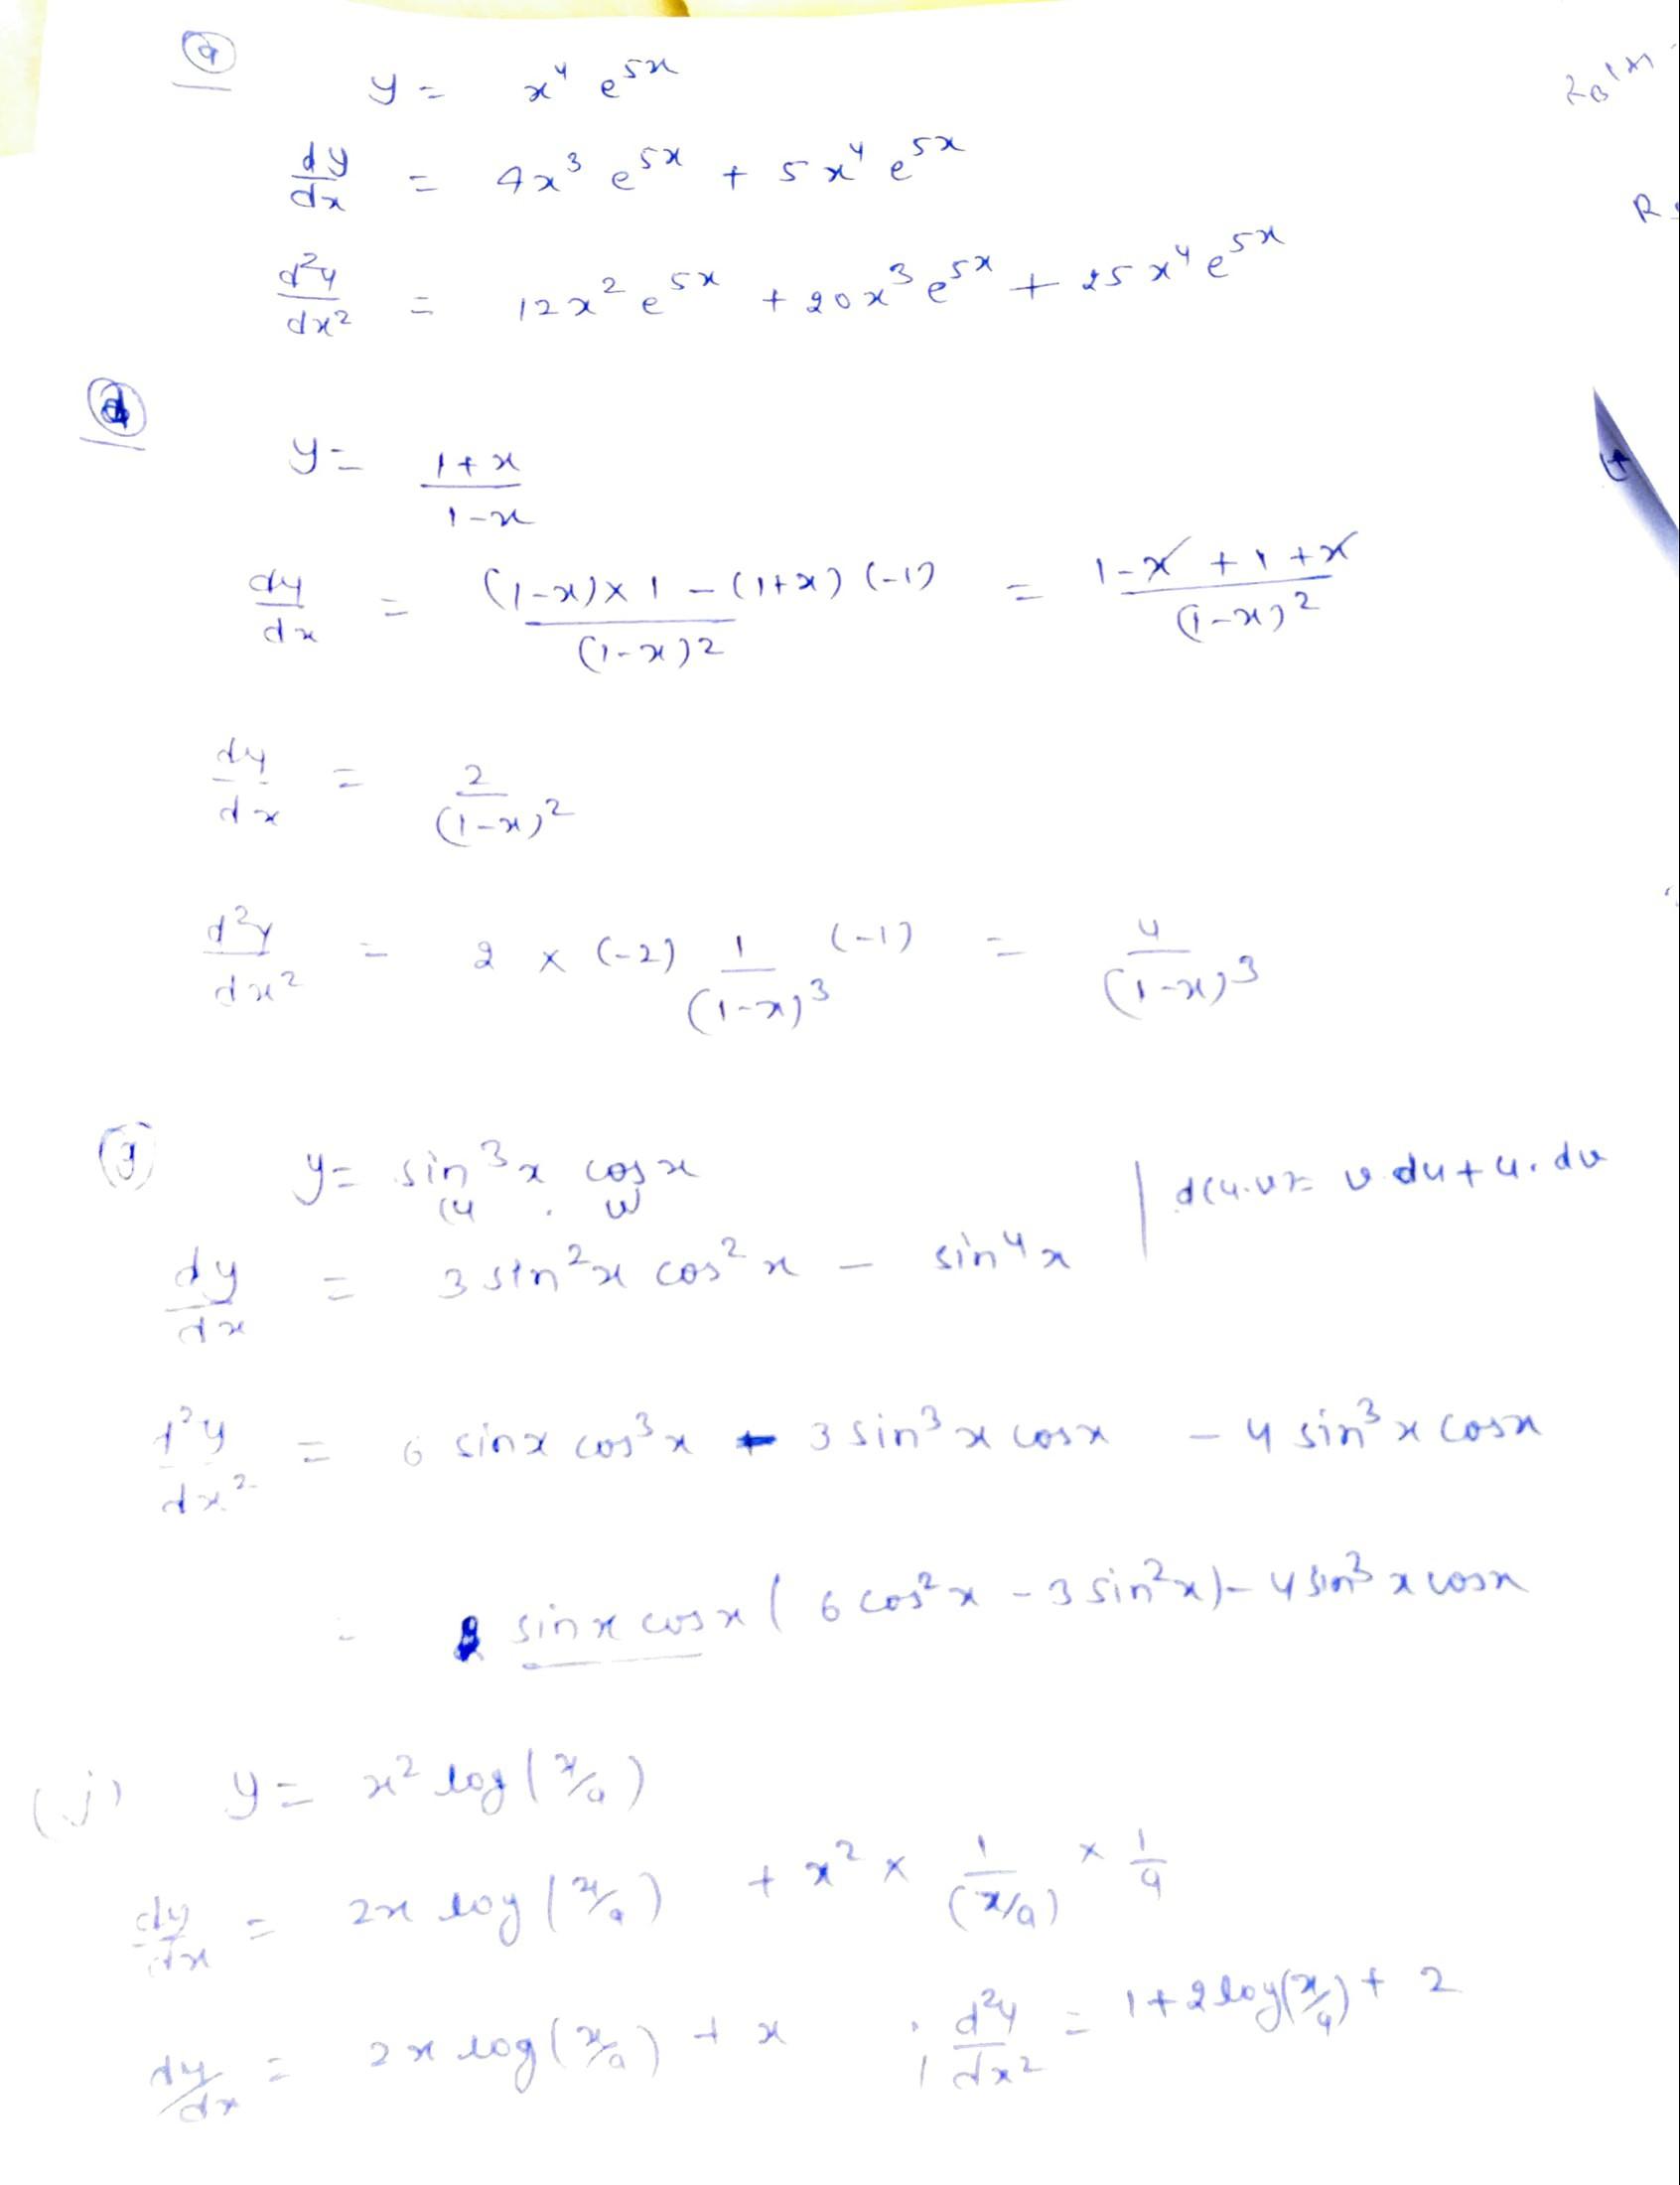 (a)
y = x⁴ e^5x
dy/dx = 4x³ e^5x + 5x⁴ e^5x
d²y/dx² = 12x² e^5x + 20x³ e^5x + 25x⁴ e^5x
(d)
y = (1+x)/(1-x)
dy/dx = ((1-x)×1 - (1+x)(-1))/(1-x)² = (1-x+1+x)/(1-x)²
dy/dx = 2/(1-x)²
d²y/dx² = 2 × (-2) 1/(1-x)³ (-1) = 4/(1-x)³
(g) y = sin³x cosx | d(u.v) = v.du + u.dv
dy/dx = 3 sin²x cos²x - sin⁴x
d²y/dx² = 6 sinx cos³x - 3 sin³x cosx - 4 sin³x cosx
= sinx cosx (6 cos²x - 3 sin²x) - 4 sin³x cosx
(j) y = x² log(x/a)
dy/dx = 2x log(x/a) + x² × 1/(x/a) × 1/a
dy/dx = 2x log(x/a) + x ; d²y/dx² = 1 + 2 log(x/a) + 2